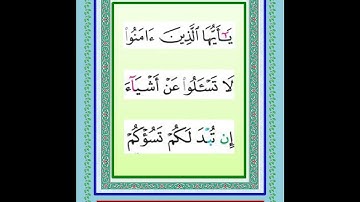 يَـٰٓأَيُّهَا ٱلَّذِينَ ءَامَنُوا۟
لَا تَسْـَٔلُوا۟ عَنْ أَشْيَآءَ
إِن تُبْدَ لَكُمْ تَسُؤْكُمْ